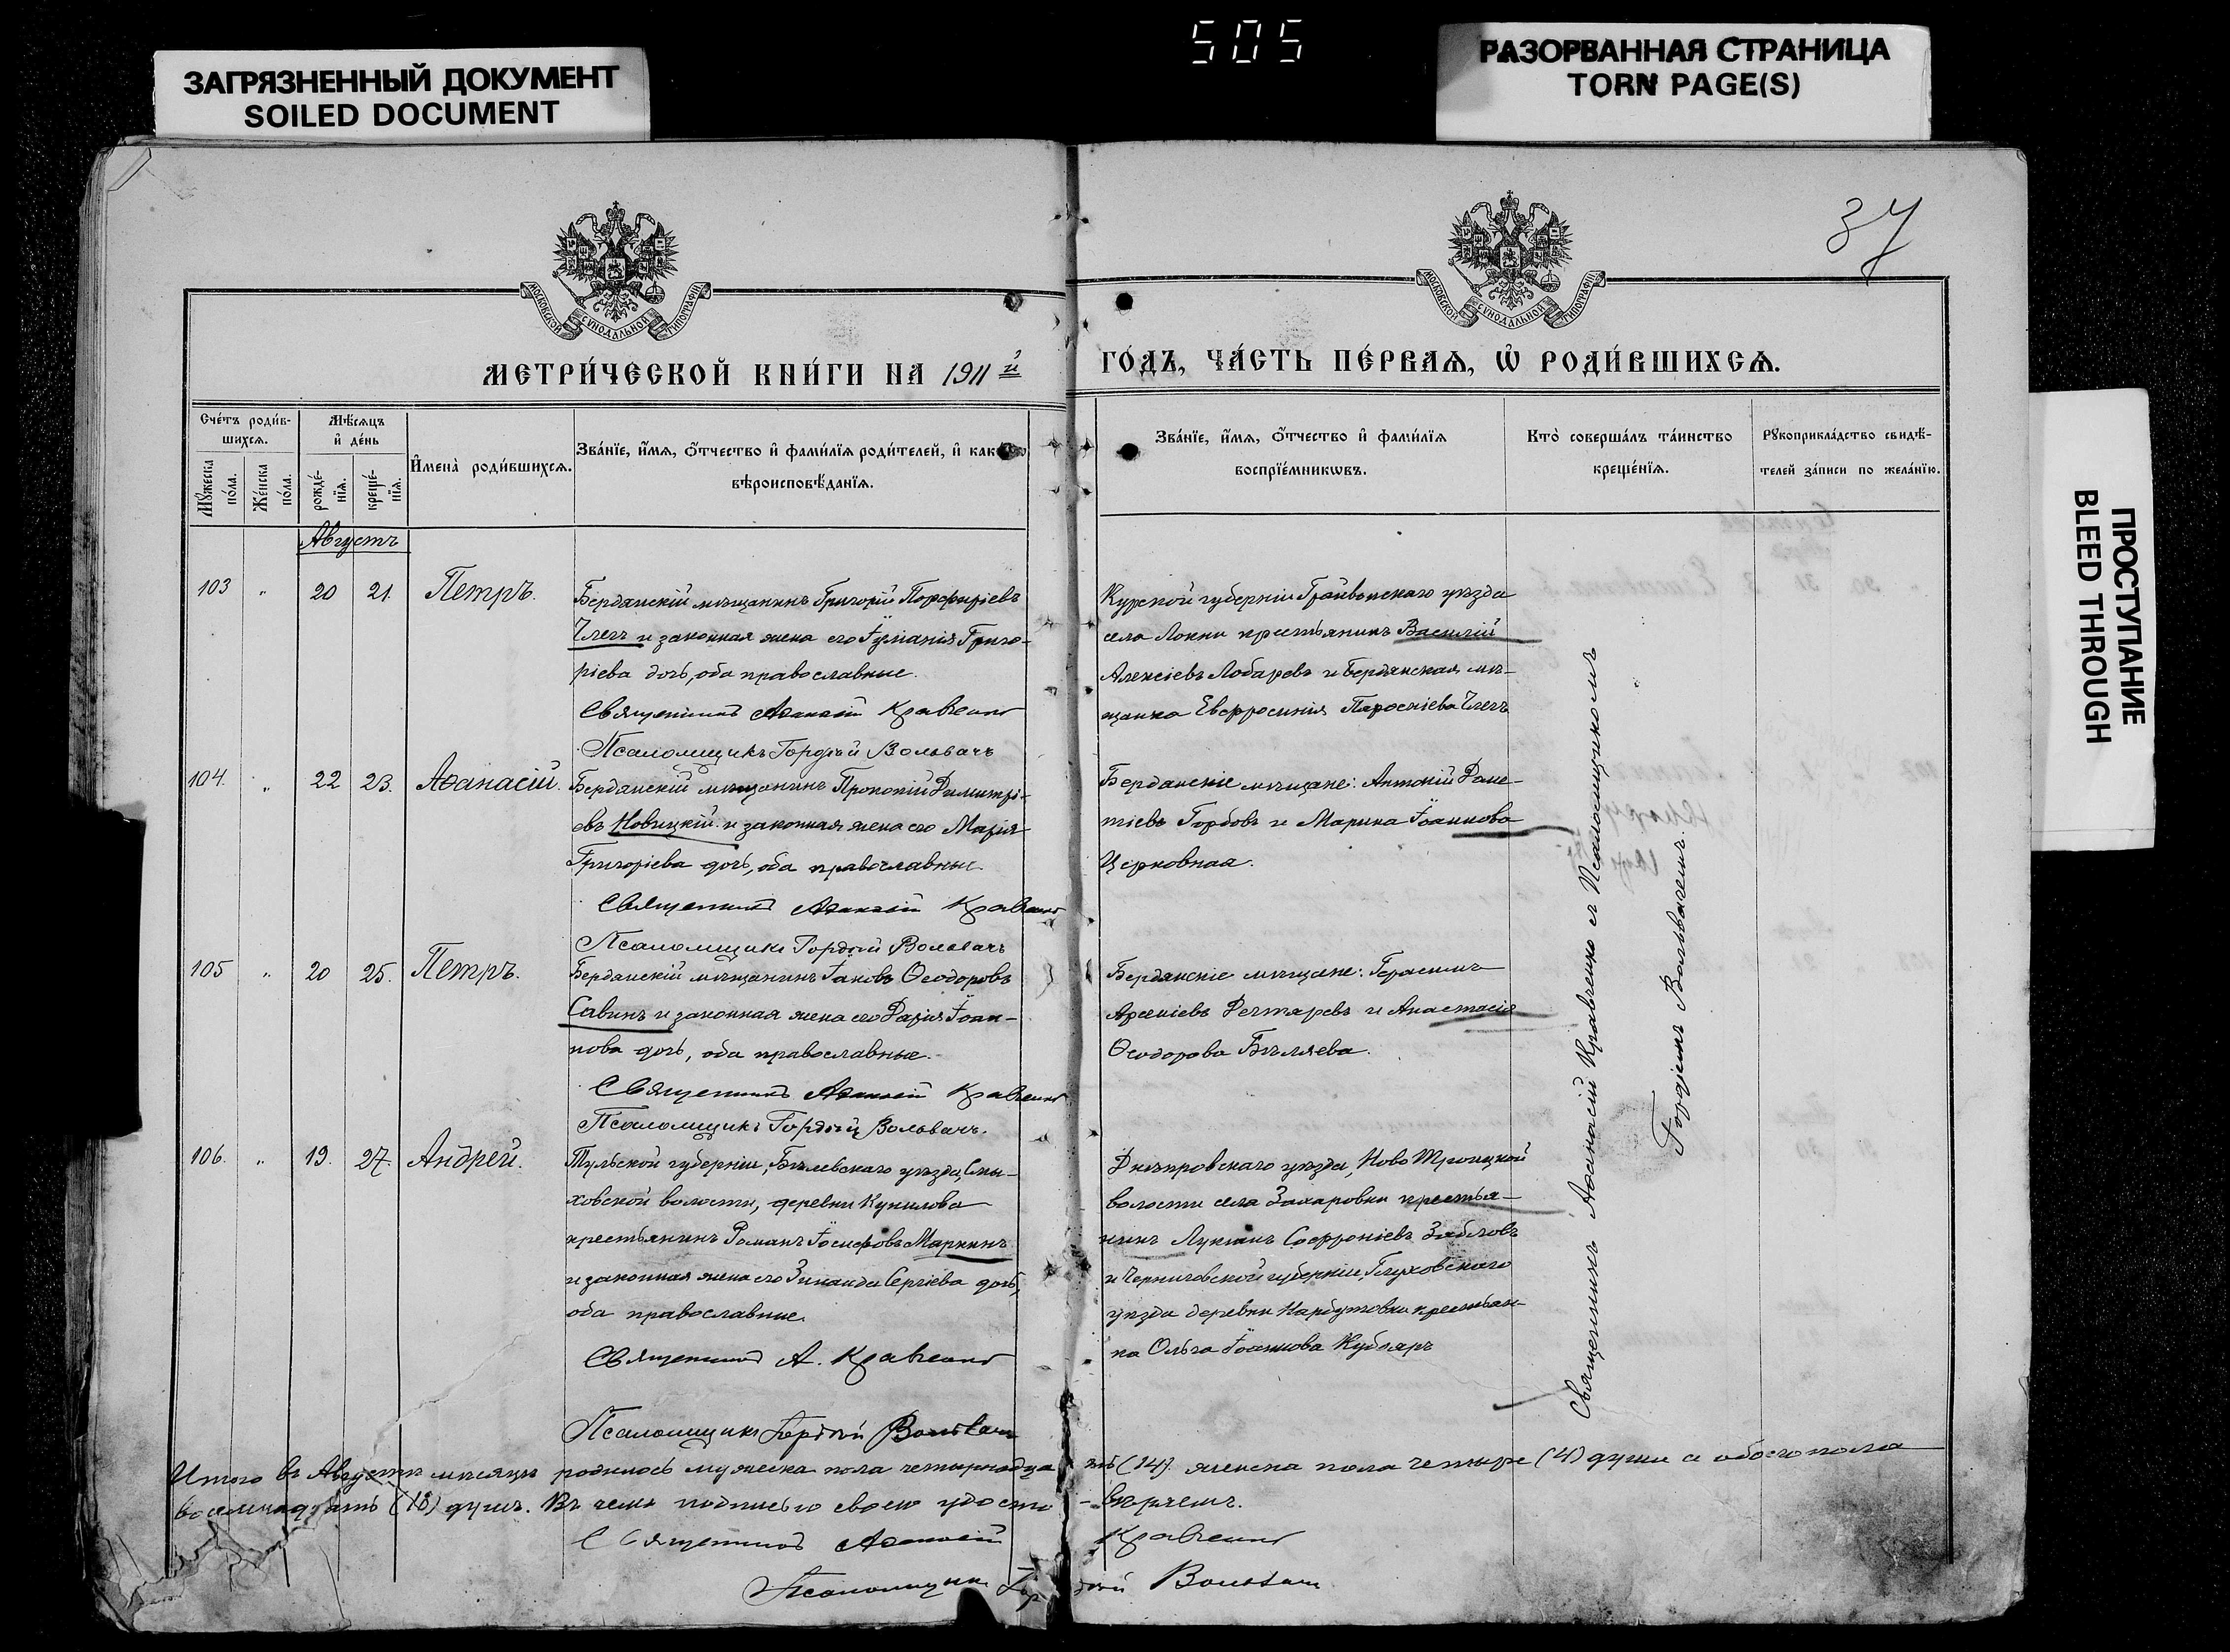 505
ЗАГРЯЗНЕННЫЙ ДОКУМЕНТ
SOILED DOCUMENT
РАЗОРВАННАЯ СТРАНИЦА
TORN PAGE(S)
ПРОСТУПАНИЕ
BLEED THROUGH
37
МОСКОВСКОЙ СѴНОДАЛЬНОЙ ТИПОГРАФІИ
МОСКОВСКОЙ СѴНОДАЛЬНОЙ ТИПОГРАФІИ
МЕТРИ́ЧЕСКОЙ КНИ́ГИ НА 1911 й
ГО́ДЪ, ЧА́СТЬ ПЕ́РВАѦ, Ѽ РОДИ́ВШИХСѦ.
Сче́тъ роди́в-
шихсѧ.
Мꙋ́жеска по́ла.
Же́нска по́ла.
Мѣ́сѧцъ
и҆ де́нь
рожде́-
нїѧ.
креще́-
нїѧ.
И҆мена̀ роди́вшихсѧ.
Зва́нїе, и҆́мѧ, ѻ҆́тчество и҆ фами́лїѧ роди́телей, и҆ как
вѣроисповѣ́данїѧ.
Зва́нїе, и҆́мѧ, ѻ҆́тчество и҆ фами́лїѧ
воспрїе́мникѡвъ.
Кто̀ соверша́лъ та́инство
креще́нїѧ.
Рꙋкоприкла́дство свидѣ́-
телей за́писи по жела́нїю.
Августъ
103 " 20 21. Петръ.
Бердянскій мѣщанинъ Григорій Порфиріевъ
Члегъ и законная жена его Іуліанія Григо-
ріева дочь, оба православные.
Священникъ Аѳанасій Кравченко
Псаломщикъ Гордѣй Вольвачъ
Курской губерніи Грайвонскаго уѣзда
села Локни крестьянинъ Василій
Алексіевъ Лобаревъ и Бердянская мѣ-
щанка Евфросинія Члегъ
104. " 22 23. Аѳанасій.
Бердянскій мѣщанинъ Прокопій Димитрі-
евъ Новицкій и законная жена его Марія
Григоріева дочь, оба православные.
Священникъ Аѳанасій Кравченко
Псаломщикъ Гордѣй Вольвачъ
Бердянскіе мѣщане: Антоній
Горбовъ и Марина Іоаннова
Церковная.
105 " 20 25. Петръ.
Бердянскій мѣщанинъ Іаковъ Ѳеодоровъ
Савинъ и законная жена его Дарія Іоан-
нова дочь, оба православные.
Священникъ Аѳанасій Кравченко
Псаломщикъ Гордѣй Вольвачъ.
Бердянскіе мѣщане: Герасимъ
Арсеніевъ Дегтяревъ и Анастасія
Ѳеодорова Бѣляева.
106. " 19. 27. Андрей.
Тульской губерніи, Бѣлевскаго уѣзда, Сны-
ховской волости, деревни Купилова
крестьянинъ Романъ Іосифовъ Маркинъ
и законная жена его Зинаида Сергіева дочь,
оба православные.
Священникъ А. Кравченко
Псаломщикъ Гордѣй Вольвачъ
Днѣпровскаго уѣзда, Ново Троицкой
волости села Захаровки крестья-
нинъ Лукіанъ Софроніевъ Зябловъ
и Черниговской губерніи, Глуховскаго
уѣзда деревни Нарбутовки крестьян-
ка Ольга Іоаннова Кубляръ
Священникъ Аѳанасій Кравченко съ Псаломщикомъ
Гордіемъ Вольвачемъ.
Итого въ Августѣ мѣсяцѣ родилось мужеска пола четырнадца-ть (14). женска пола четыре (4) души а обоего пола
восемнадцать (18) душъ. Въ чемъ подписью своею удосто-вѣряемъ.
Священникъ Аѳанасій Кравченко
Псаломщикъ Гордѣй Вольвачъ